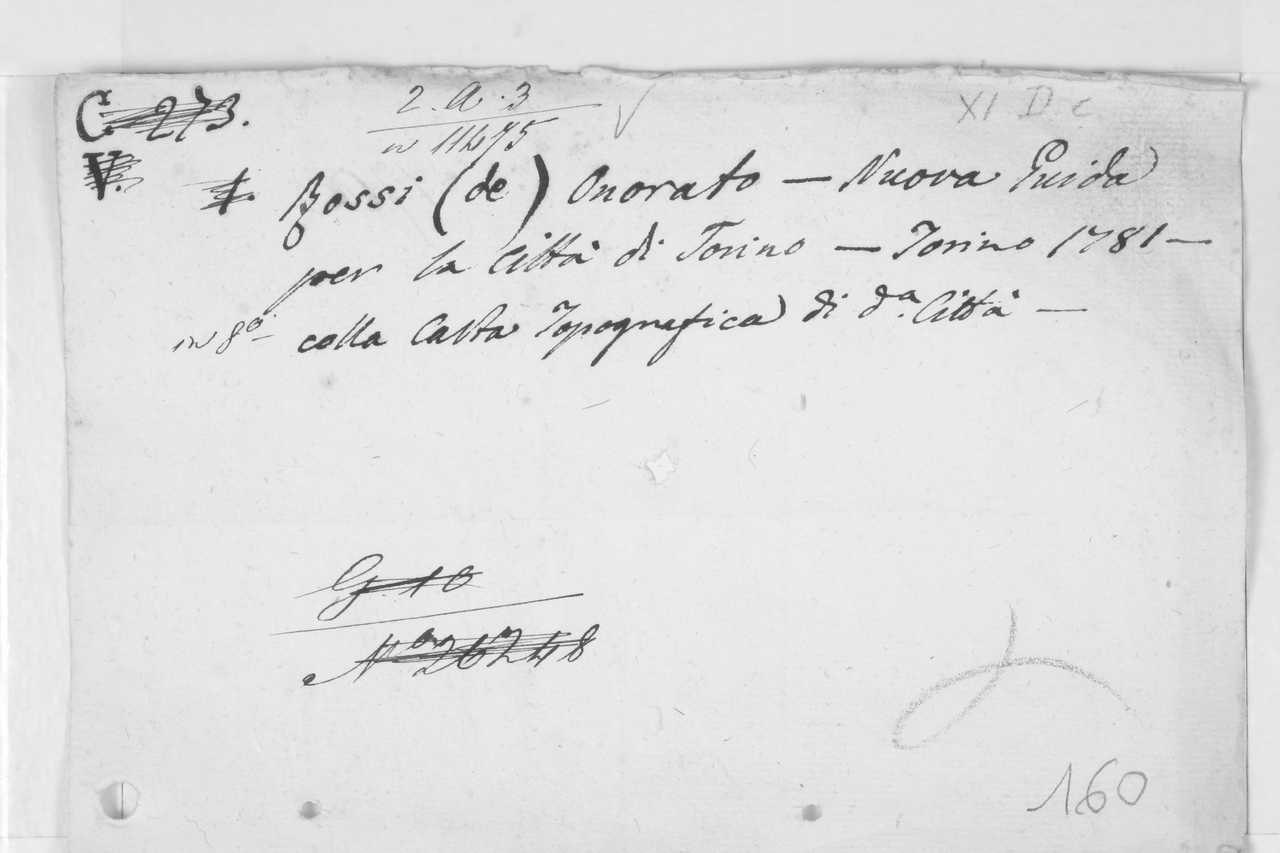 C 273.
2. A. 3
n 11475
XI D c
V.
Rossi (de) Onorato — Nuova Guida
per la Città di Torino — Torino 1781 —
in 8º — colla Carta Topografica di dª. Città —
G. 10
Nº 26248
160